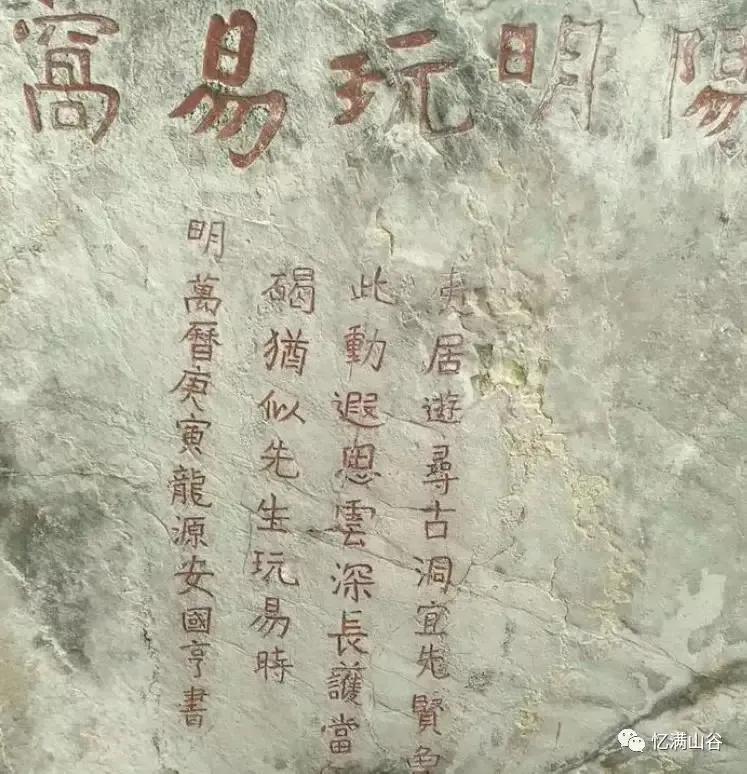 陽明玩易窩
夷居遊尋古洞宜先賢
此動遐思雲深長護當
碣猶似先生玩易時
明萬曆庚寅龍源安國亨書
忆满山谷